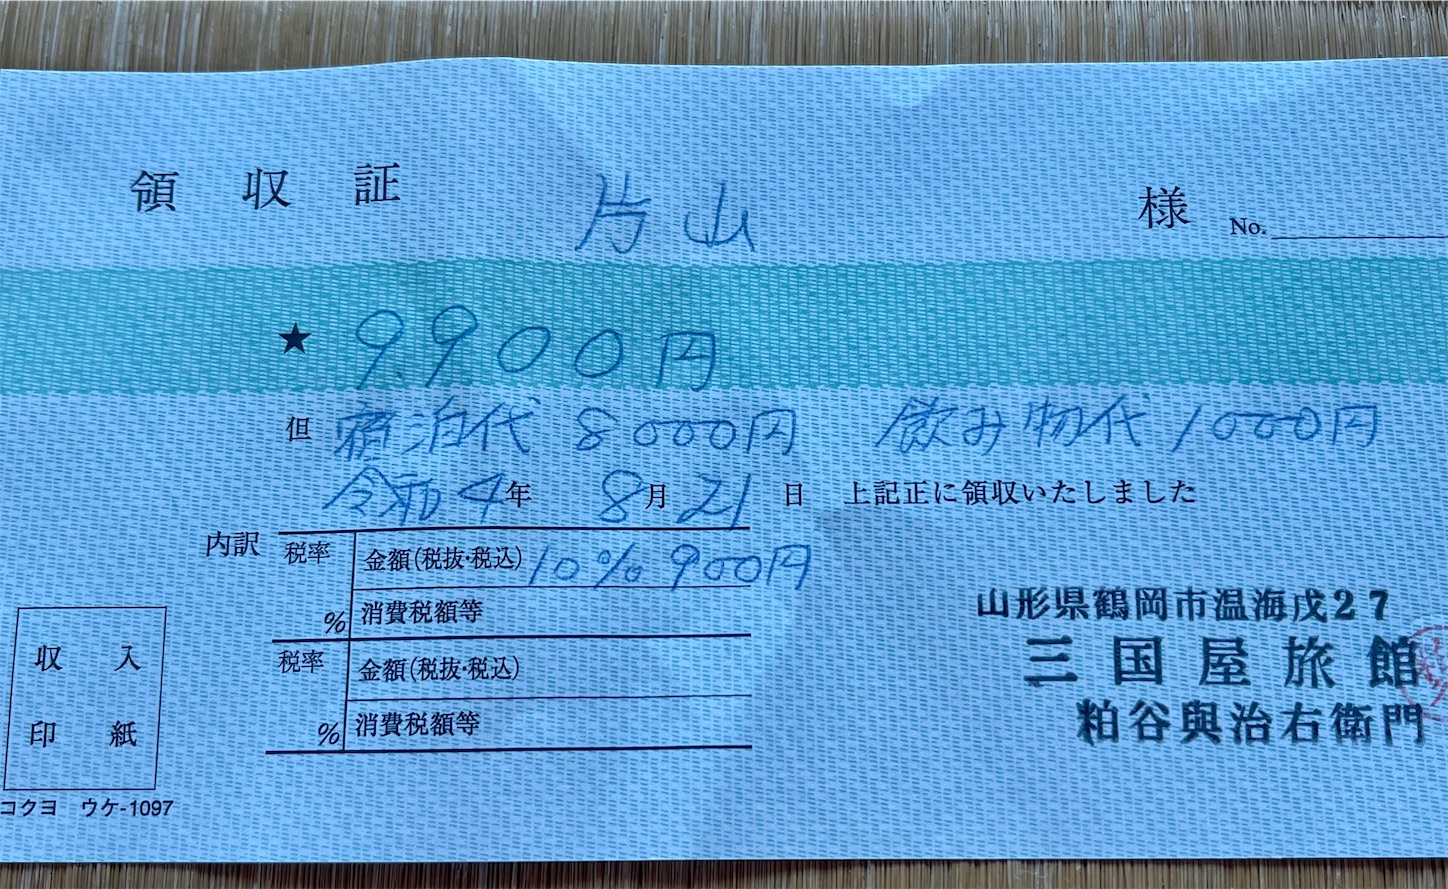 領収証 片山 様 No.
★ 9,900円
但 宿泊代 8000円 飲み物代 1000円
令和4年 8月21日 上記正に領収いたしました
内訳 税率 % 金額(税抜・税込) 10% 900円
消費税額等
税率 % 金額(税抜・税込)
消費税額等
収入
印紙
コクヨ ウケ-1097
山形県鶴岡市温海戊27
三国屋旅館
粕谷與治右衛門